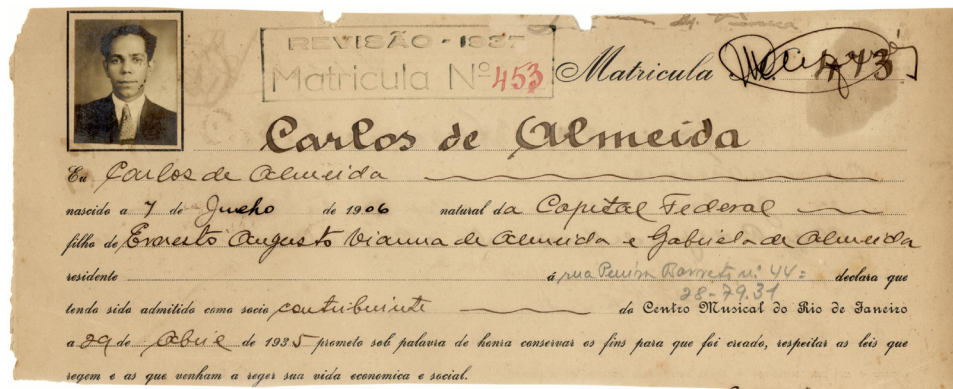 REVISÃO - 1937
Matricula Nº 453
Matricula 443
Carlos de Almeida
Eu Carlos de Almeida
nascido a 7 de Junho de 1906 natural da Capital Federal
filho de Ernesto Augusto Vianna de Almeida e Gabriela de Almeida
residente á rua nº 44: declara que
28-7931
tendo sido admitido como socio contribuinte do Centro Musical do Rio de Janeiro
a 29 de Abril de 1935 prometo sob palavra de honra conservar os fins para que foi creado, respeitar as leis que
regem e as que venham a reger sua vida economica e social.